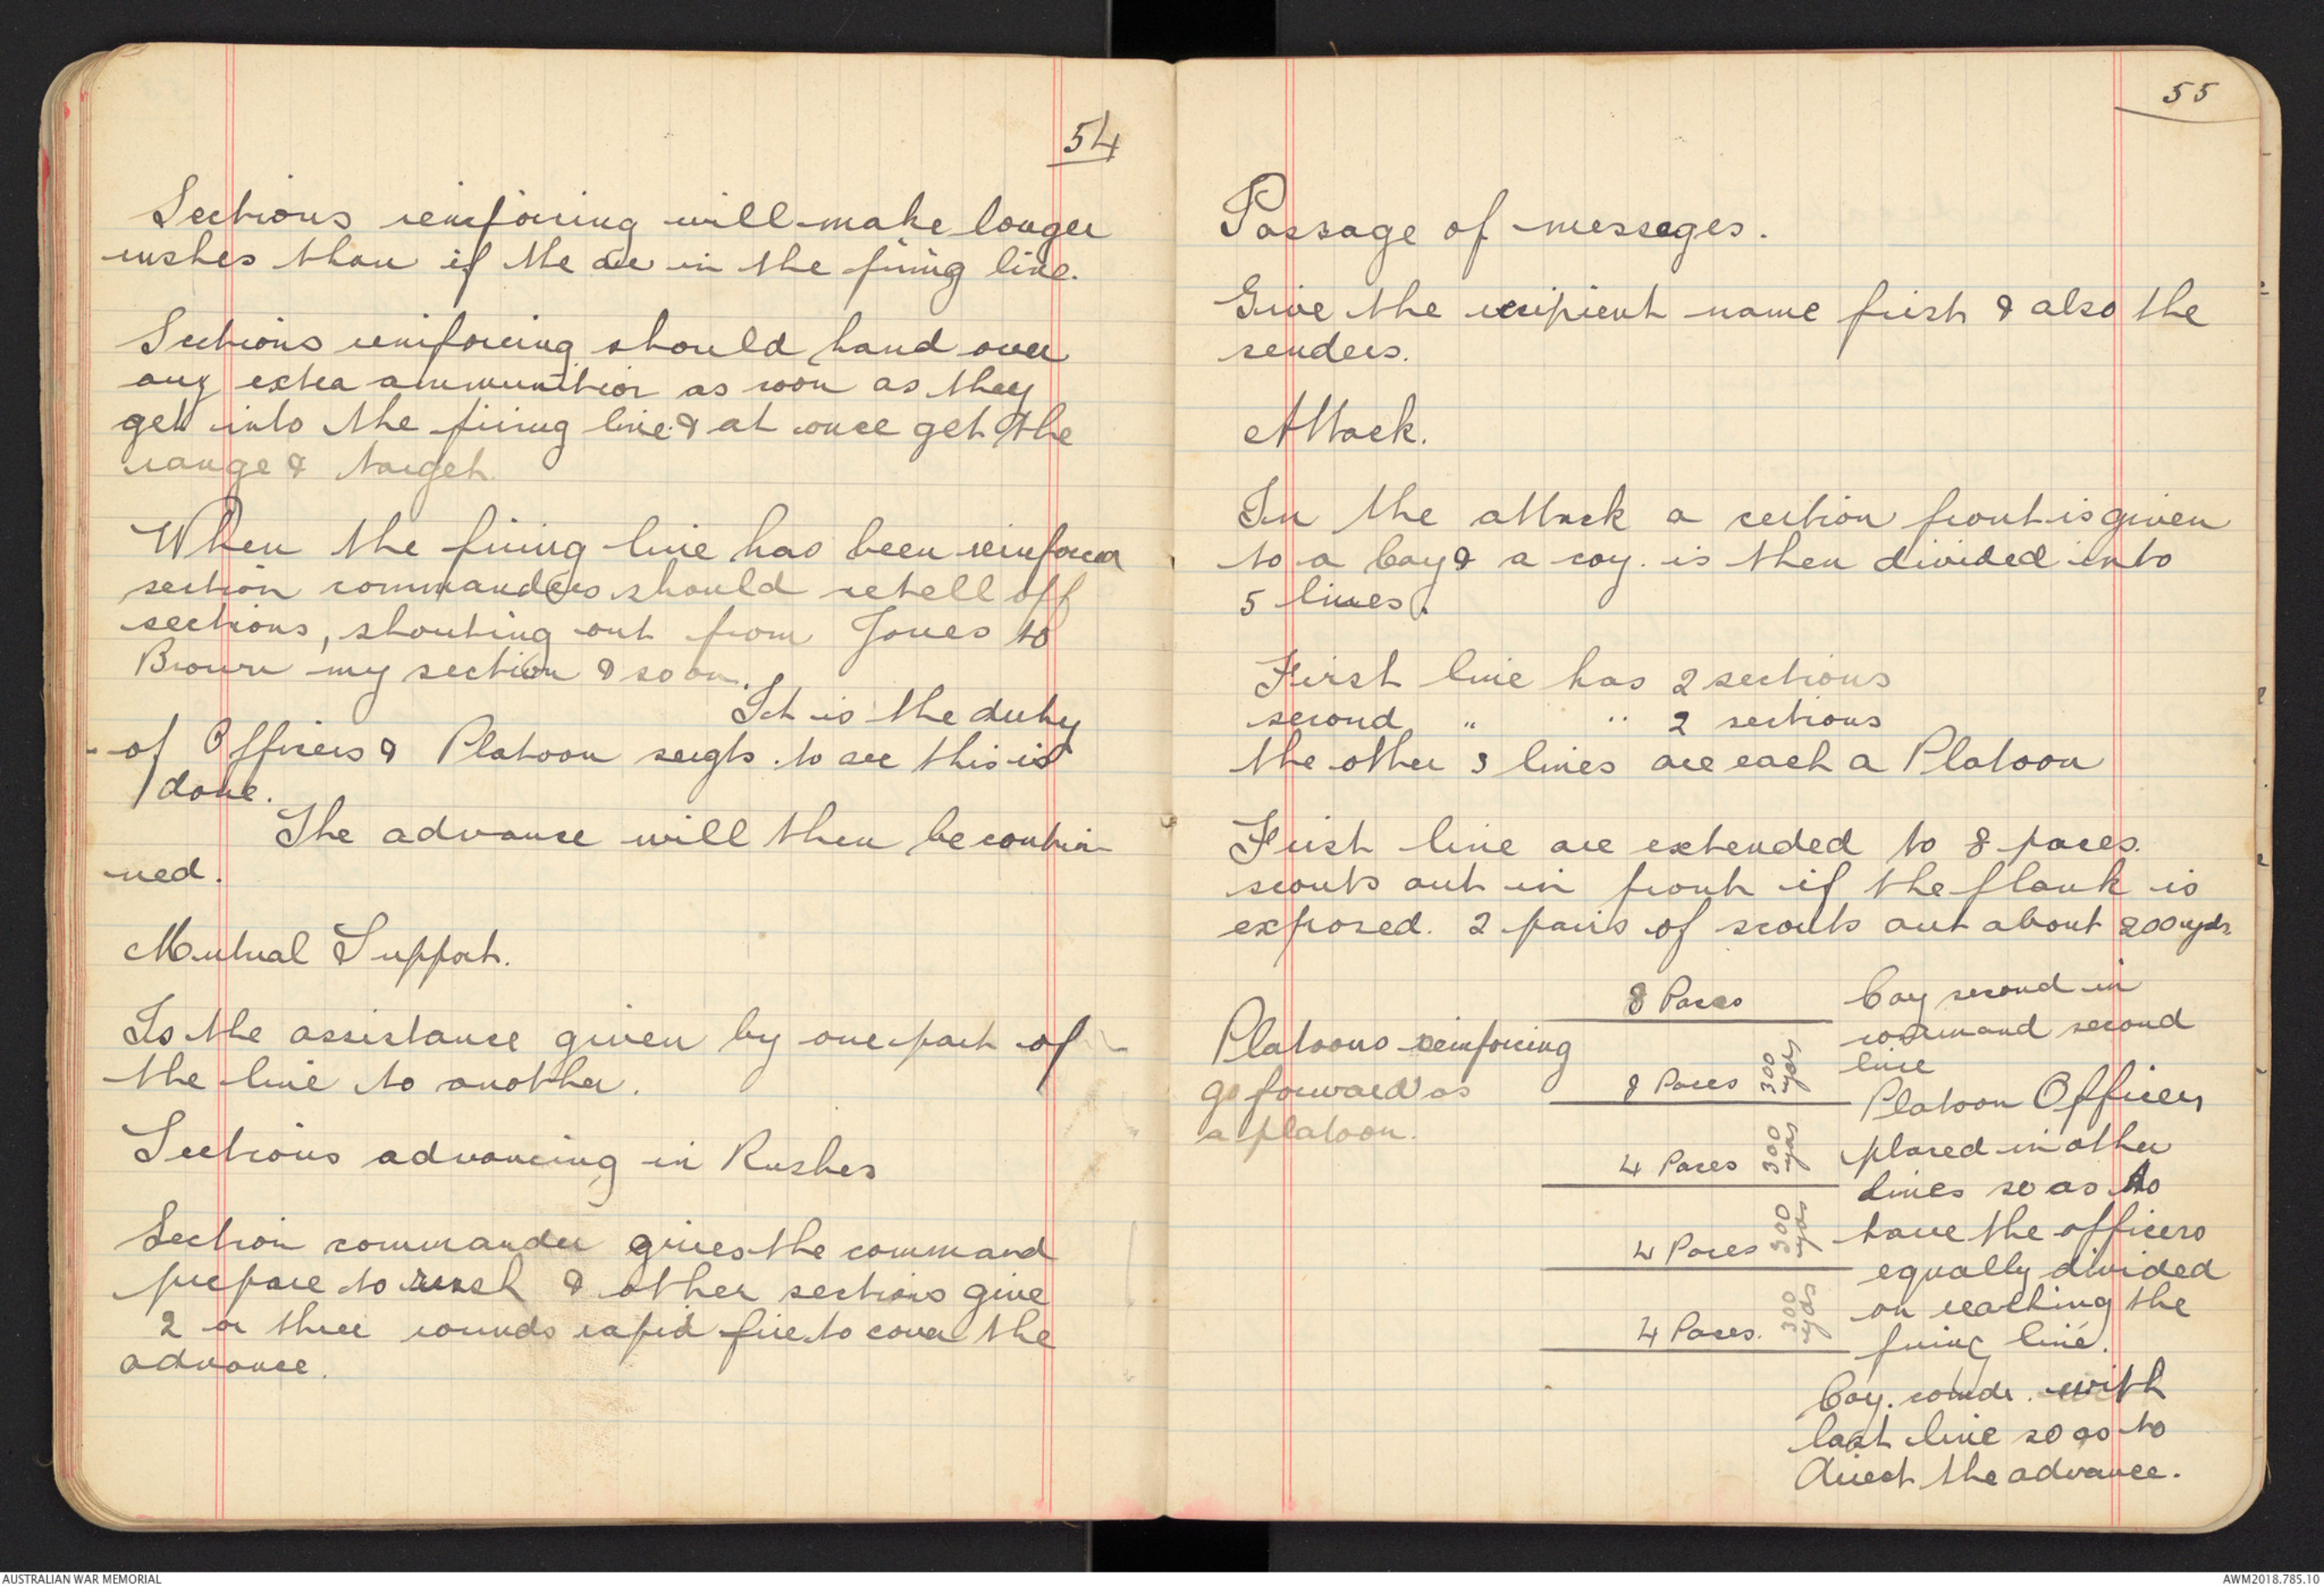 54
Sections reinforcing will make longer
rushes than if the are in the firing line.
Sections reinforcing should hand over
any extra ammunition as soon as they
get into the firing line & at once get the
range & target.
When the firing line has been reinforced
section commanders should retell off
sections, shouting out from Jones to
Brown my section & so on.
It is the duty
of Officers & Platoon sergts. to see this is
done.
The advance will then be contin-
ued.
Mutual Support.
Is the assistance given by one part of
the line to another.
Sections advancing in Rushes
Section commander gives the command
prepare to rush & other sections give
2 or three rounds rapid fire to cover the
advance.
55
Passage of messages.
Give the recipient name first & also the
senders.
Attack.
In the attack a section front is given
to a Coy & a coy. is then divided into
5 lines.
First line has 2 sections
second " " 2 sections
the other 3 lines are each a Platoon
First line are extended to 8 paces.
scouts out in front if the flank is
exposed. 2 pairs of scouts out about 200 yds.
Platoons reinforcing
go forward as
a platoon.
8 Paces
300 yds
8 Paces
300 yds
4 Paces
300 yds
4 Paces
300 yds
4 Paces.
Coy second in
command second
line
Platoon Officers
placed in other
lines so as to
have the officers
equally divided
on reaching the
firing line.
Coy. comdr. with
last line so as to
direct the advance.
AUSTRALIAN WAR MEMORIAL
AWM2018.785.10